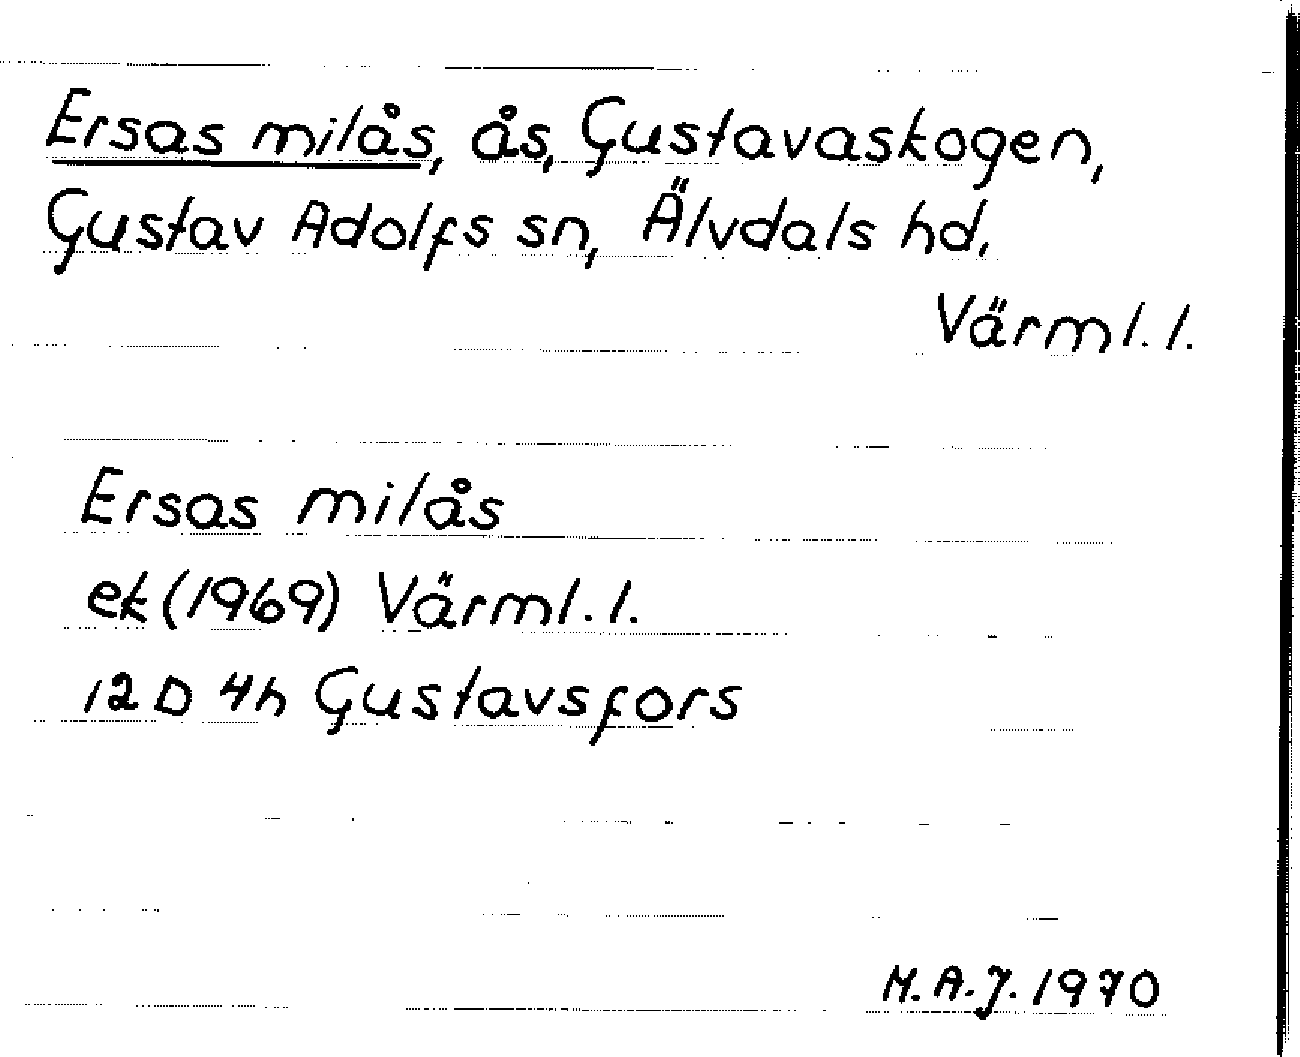 Ersas milås, ås, Gustavaskogen,
Gustav Adolfs sn, Älvdals hd,
Värml. l.
Ersas milås
ek (1969) Värml. l.
12 D 4h Gustavsfors
M. A. J. 1970